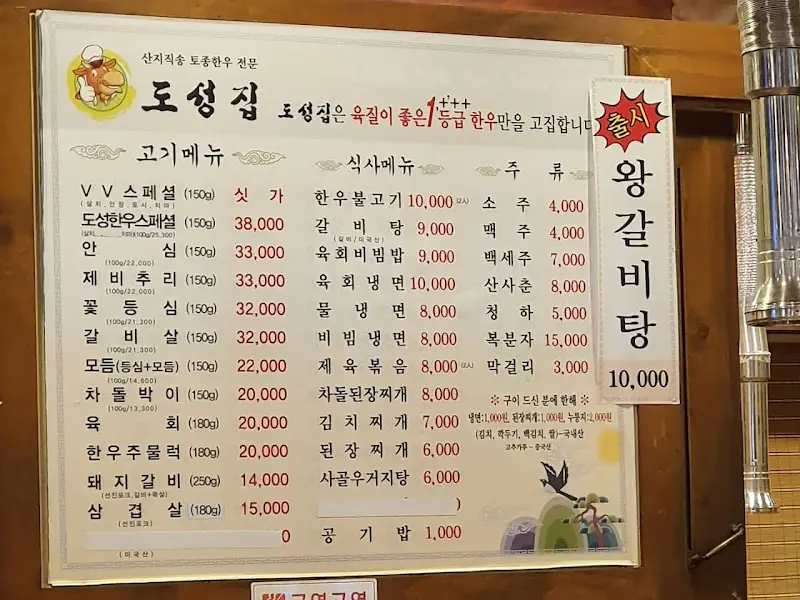 산지직송 토종한우 전문
도성집 도성집은 육질이 좋은 1⁺⁺⁺등급 한우만을 고집합니다
고기메뉴
V V 스페셜 (150g) 싯 가
(살치, 안창, 토시, 치마)
도성한우스페셜 (150g) 38,000
안 심 (150g) 33,000
(100g/22,000)
제 비 추 리 (150g) 33,000
(100g/22,000)
꽃 등 심 (150g) 32,000
(100g/21,300)
갈 비 살 (150g) 32,000
(100g/21,300)
모듬(등심+모듬) (150g) 22,000
(100g/14,600)
차 돌 박 이 (150g) 20,000
(100g/13,300)
육 회 (180g) 20,000
한우주물럭 (180g) 20,000
돼 지 갈 비 (250g) 14,000
(선진포크, 갈비+목살)
삼 겹 살 (180g) 15,000
(선진포크)
0
(미국산)
식사메뉴
한우불고기 10,000 (2인)
갈 비 탕 9,000
(갈비/미국산)
육회비빔밥 9,000
육 회 냉 면 10,000
물 냉 면 8,000
비 빔 냉 면 8,000
제 육 볶 음 8,000 (2인)
차돌된장찌개 8,000
김 치 찌 개 7,000
된 장 찌 개 6,000
사골우거지탕 6,000
공 기 밥 1,000
주 류
소 주 4,000
맥 주 4,000
백세주 7,000
산사춘 8,000
청 하 5,000
복분자 15,000
막걸리 3,000
※ 구이 드신 분에 한해 ※
냉면:1,000원, 된장찌개:1,000원, 누룽지:2,000원
(김치, 깍두기, 백김치, 쌀)-국내산
고추가루 - 중국산
출시
왕갈비탕
10,000